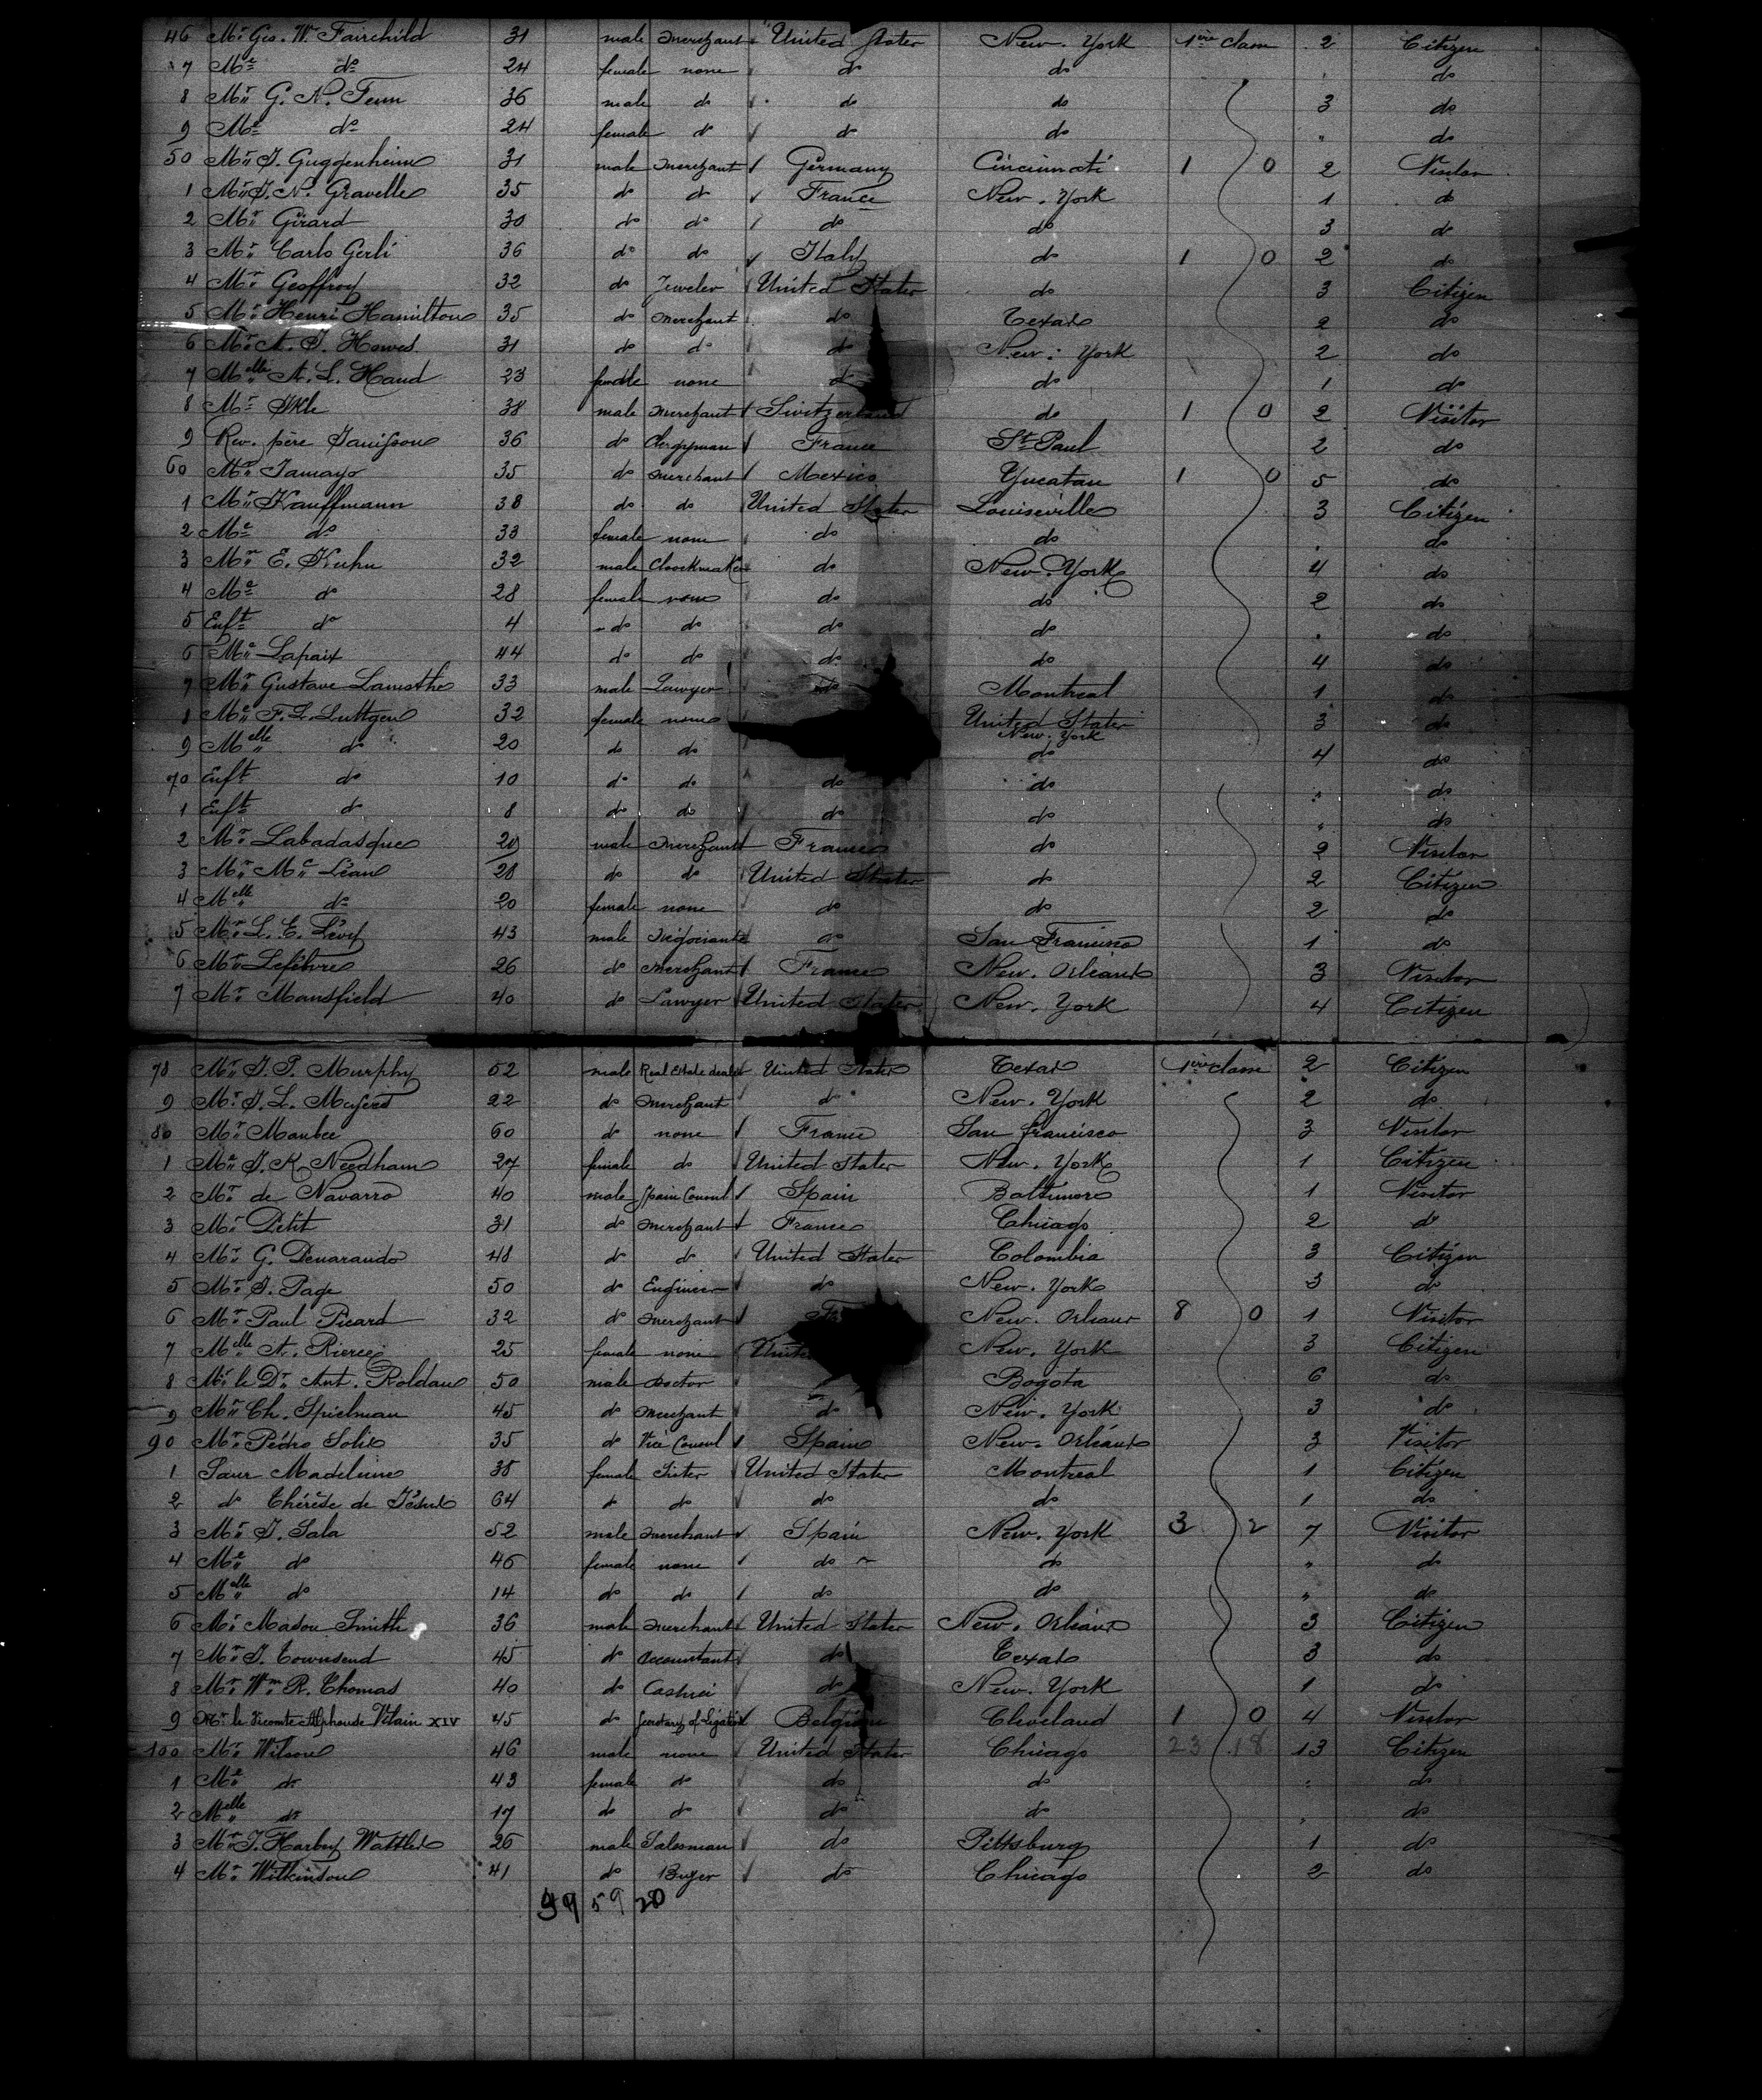 46 Mr. Geo. W. Fairchild 31 male Merchant United States New. York 1ère classe 2 Citizen
7 Me do 24 female none do do " do
8 Mr. G. N. Fenn 36 male do do do 3 do
9 Me do 24 female do do do " do
50 Mr. J. Guggenheim 31 male Merchant Germany Cincinnati 1 0 2 Visitor
1 Mr. J. N. Gravelle 35 do do France New. York 1 do
2 Mr. Girard 30 do do do do 3 do
3 Mr. Carlo Gerli 36 do do Italy do 1 0 2 do
4 Mr. Geoffroy 32 do Jeweler United States do 3 Citizen
5 Mr. Henri Hamilton 35 do Merchant do Texas 2 do
6 Mr. A. J. Howes 31 do do do New. York 2 do
7 Melle A. L. Hand 23 female none do do 1 do
8 Mr. Ikle 38 male Merchant Switzerland do 1 0 2 Visitor
9 Rev. père 36 do Clergyman France St. Paul 2 do
60 Mr. Tamayo 35 do Merchant Mexico Yucatan 1 0 5 do
1 Mr. Kauffmann 38 do do United States Louiseville 3 Citizen
2 Me do 33 female none do do " do
3 Mr. E. Kuhn 32 male Cloockmaker do New. York 4 do
4 Me do 28 female none do do 2 do
5 Enft do 4 do do do do " do
6 Me Lapaix 44 do do do do 4 do
7 Mr. Gustave Lamothe 33 male Lawyer do Montreal 1 do
8 Me F. L. Luttgen 32 female none United States New. York 3 do
9 Melle do 20 do do do 4 do
70 Enft do 10 do do do do " do
1 Enft do 8 do do do do " do
2 Mr. Labadasque 29 male Merchant France do 2 Visitor
3 Mr. Mc Léan 28 do do United States do 2 Citizen
4 Melle do 20 female none do do 2 do
5 Mr. L. E. Lévy 43 male Négociante do San Francisco 1 do
6 Mr. Lefêbvre 26 do Merchant France New. Orléans 3 Visitor
7 Mr. Mansfield 40 do Lawyer United States New. York 4 Citizen
78 Mr. J. P. Murphy 52 male Real Estate dealer United States Texas 1ère classe 2 Citizen
9 Mr. J. L. Meyers 22 do Merchant do New. York 2 do
80 Mr. Maubec 60 do none France San francisco 3 Visitor
1 Me J. K. Needham 27 female do United States New. York 1 Citizen
2 Mr. de Navarro 40 male Spain Consul Spain Baltimore 1 Visitor
3 Mr. Petit 31 do Merchant France Chicago 2 do
4 Mr. G. Penarando 48 do do United States Colombia 3 Citizen
5 Mr. J. Page 50 do Engineer do New. York 3 do
6 Mr. Paul Picard 32 do Merchant New. Orleans 8 0 1 Visitor
7 Melle A. Pierce 25 female none United New. York 3 Citizen
8 Mr. le Dr. Ant. Roldan 50 male Doctor Bogota 6 do
9 Mr. Ch. Spielman 45 do Merchant do New. York 3 do
90 Mr. Pédro Solis 35 do Vice Consul Spain New. Orléans 3 Visitor
1 Sœur Madeleine 38 female Sister United States Montreal 1 Citizen
2 do Thérèse de Jésus 64 do do do do 1 do
3 Mr. J. Sala 52 male Merchant Spain New. York 3 2 7 Visitor
4 Me do 46 female none do do " do
5 Melle do 14 do do do do " do
6 Mr. Madou Smith 36 male Merchant United States New. Orleans 3 Citizen
7 Mr. J. Townsend 45 do Accountant do Texas 3 do
8 Mr. Wm. R. Thomas 40 do do New. York 1 do
9 Mr. le Vicomte Alphonse Vilain XIV 45 do Secretary of Legation Belgium Cleveland 1 0 4 Visitor
100 Mr. Wilson 46 male none United States Chicago 23 18 13 Citizen
1 Me do 43 female do do do " do
2 Melle do 17 do do do do " do
3 Mr. J. Harbey Wattles 26 male Salesman do Pittsburg 1 do
4 Mr. Wilkinson 41 do Buyer do Chicago 2 do
99 59 20